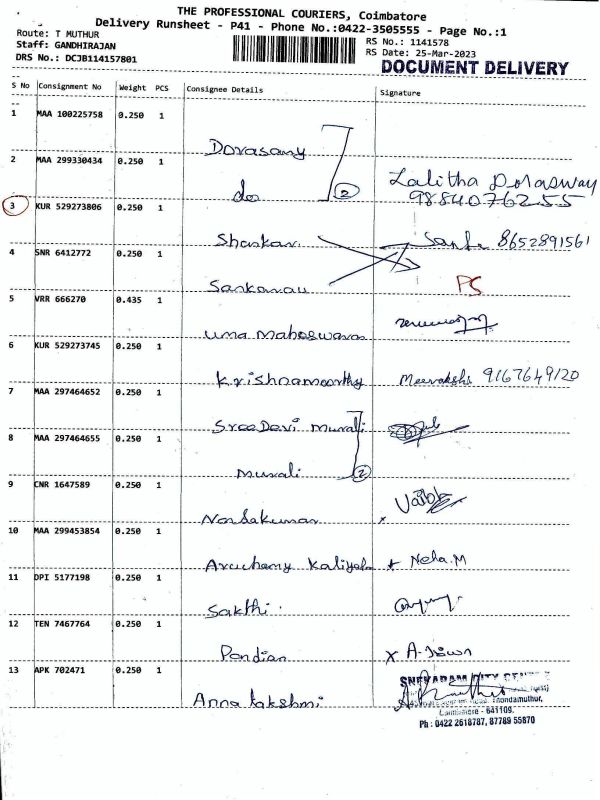 THE PROFESSIONAL COURIERS, Coimbatore
Delivery Runsheet - P41 - Phone No.:0422-3505555 - Page No.:1
Route: T MUTHUR
RS No.: 1141578
Staff: GANDHIRAJAN
RS Date: 25-Mar-2023
DRS No.: DCJB114157801
DOCUMENT DELIVERY
S No Consignment No Weight PCS Consignee Details Signature
1 MAA 100225758 0.250 1
Dorasamy
2 MAA 299330434 0.250 1
do 2 Lalitha Doraswamy
9884076255
3 KUR 529273806 0.250 1
Shankari 8652891561
4 SNR 6412772 0.250 1
Sankaran PS
5 VRR 666270 0.435 1
Uma Maheswaran
6 KUR 529273745 0.250 1
Krishnamoorthy Meenakshi 9167649120
7 MAA 297464652 0.250 1
Sree Devi Murali
8 MAA 297464655 0.250 1
Murali 2
9 CNR 1647589 0.250 1
Nandakumar x
10 MAA 299453854 0.250 1
Aruchamy Neha.M
11 DPI 5177198 0.250 1
Sakthi
12 TEN 7467764 0.250 1
Pandian x
13 APK 702471 0.250 1
Anna Lakshmi
Thondamuthur,
Coimbatore - 641109.
Ph : 0422 2618787, 87789 55870